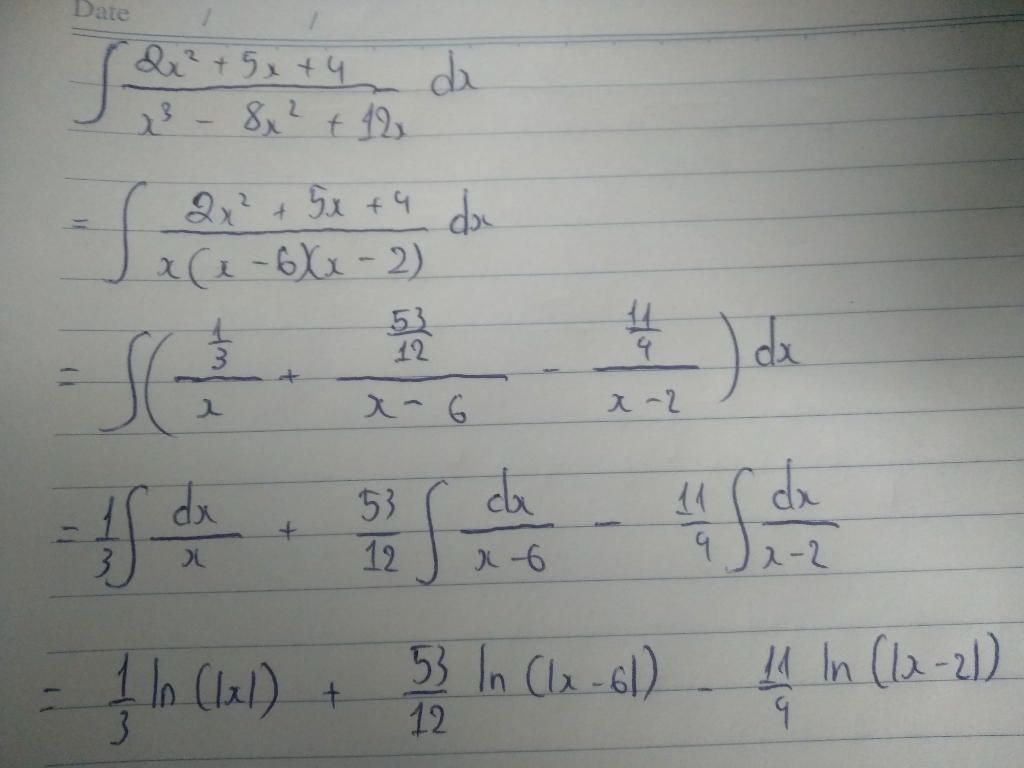 Date / /
∫ (2x² + 5x + 4)/(x³ - 8x² + 12x) dx
= ∫ (2x² + 5x + 4)/(x(x - 6)(x - 2)) dx
= ∫ ( (1/3)/x + (53/12)/(x - 6) - (11/4)/(x - 2) ) dx
= 1/3 ∫ dx/x + 53/12 ∫ dx/(x - 6) - 11/4 ∫ dx/(x - 2)
= 1/3 ln(|x|) + 53/12 ln(|x - 6|) - 11/4 ln(|x - 2|)